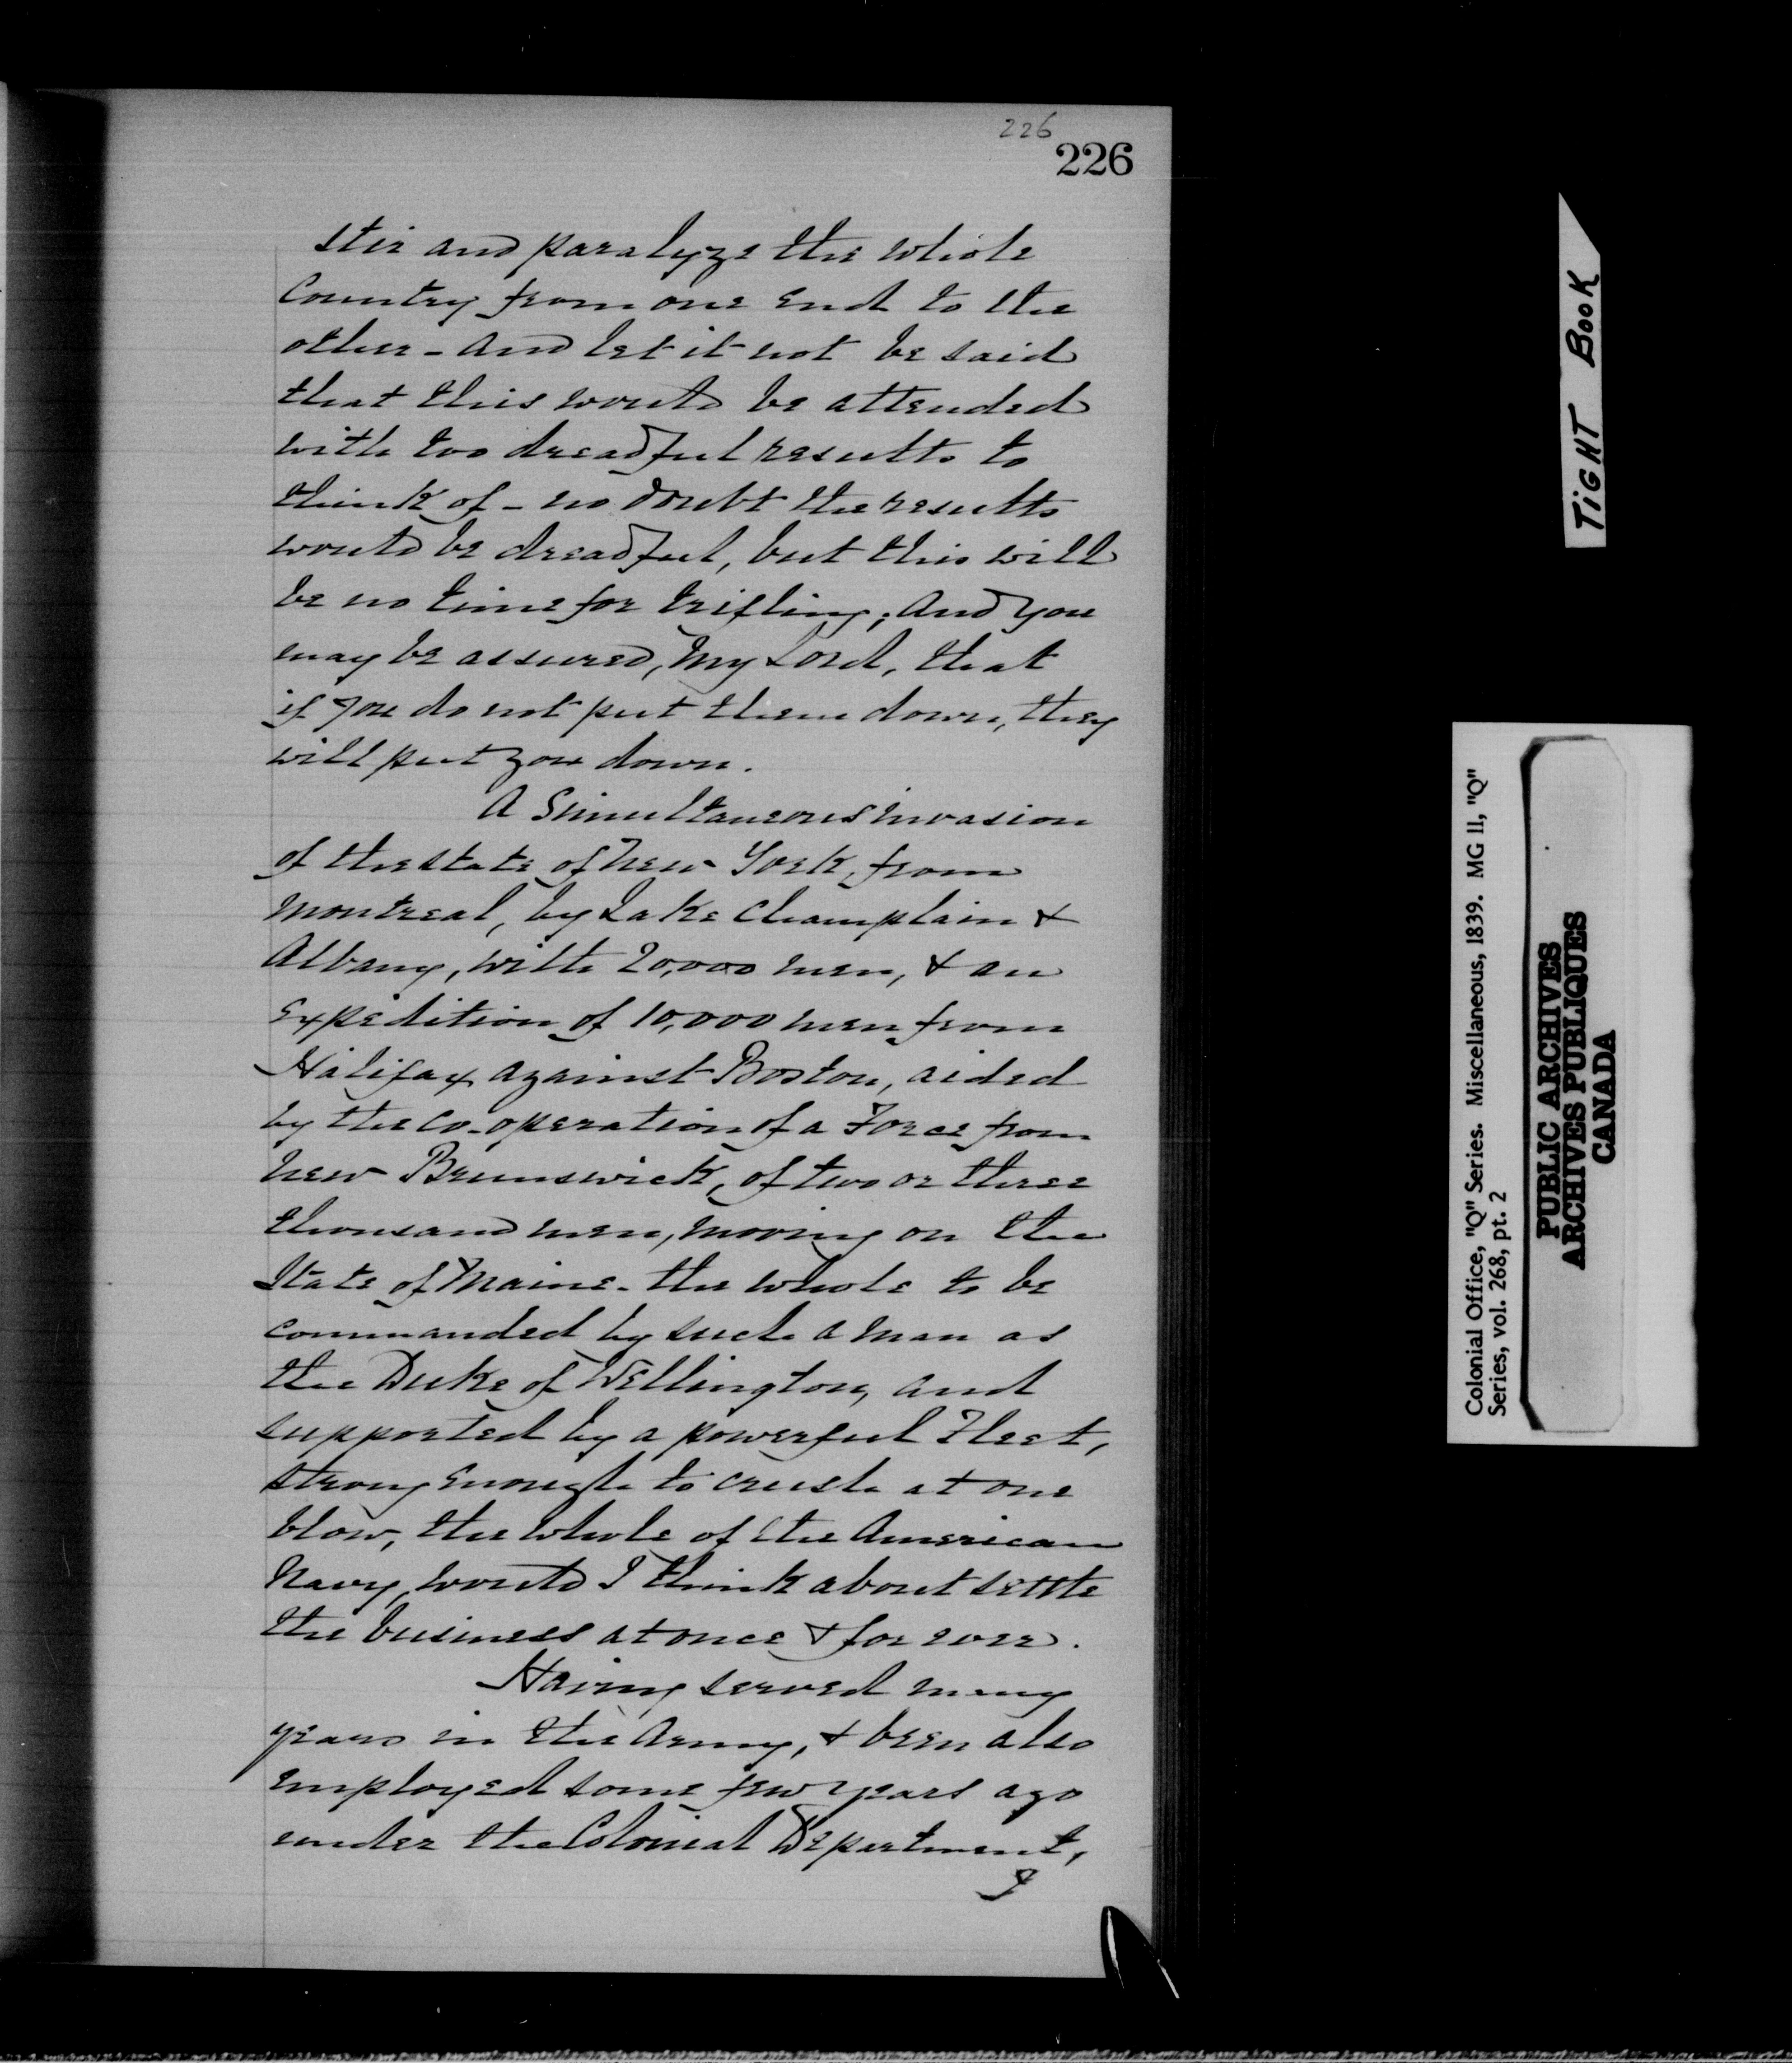 226
226
stir and paralyze the whole
Country from one end to the
other - and let it not be said
that this would be attended
with too dreadful results to
think of - no doubt the results
would be dreadful, but this will
be no time for trifling; and you
may be assured, My Lord, that
if you do not put them down, they
will put you down.
A Simultaneous invasion
of the State of New York, from
Montreal, by Lake Champlain &
Albany, with 20,000 men, & an
expedition of 10,000 men from
Halifax against Boston, aided
by the co-operation of a Force from
New Brunswick, of two or three
thousand men, moving on the
State of Maine - the whole to be
commanded by such a man as
the Duke of Wellington, and
supported by a powerful Fleet,
strong enough to crush at one
blow, the whole of the American
Navy, would I think about settle
the business at once & for ever.
Having served many
years in the Army, & been also
employed some few years ago
under the Colonial Department,
I
TIGHT BOOK
Colonial Office, "Q" Series. Miscellaneous, 1839. MG 11, "Q"
Series, vol. 268, pt. 2
PUBLIC ARCHIVES
ARCHIVES PUBLIQUES
CANADA